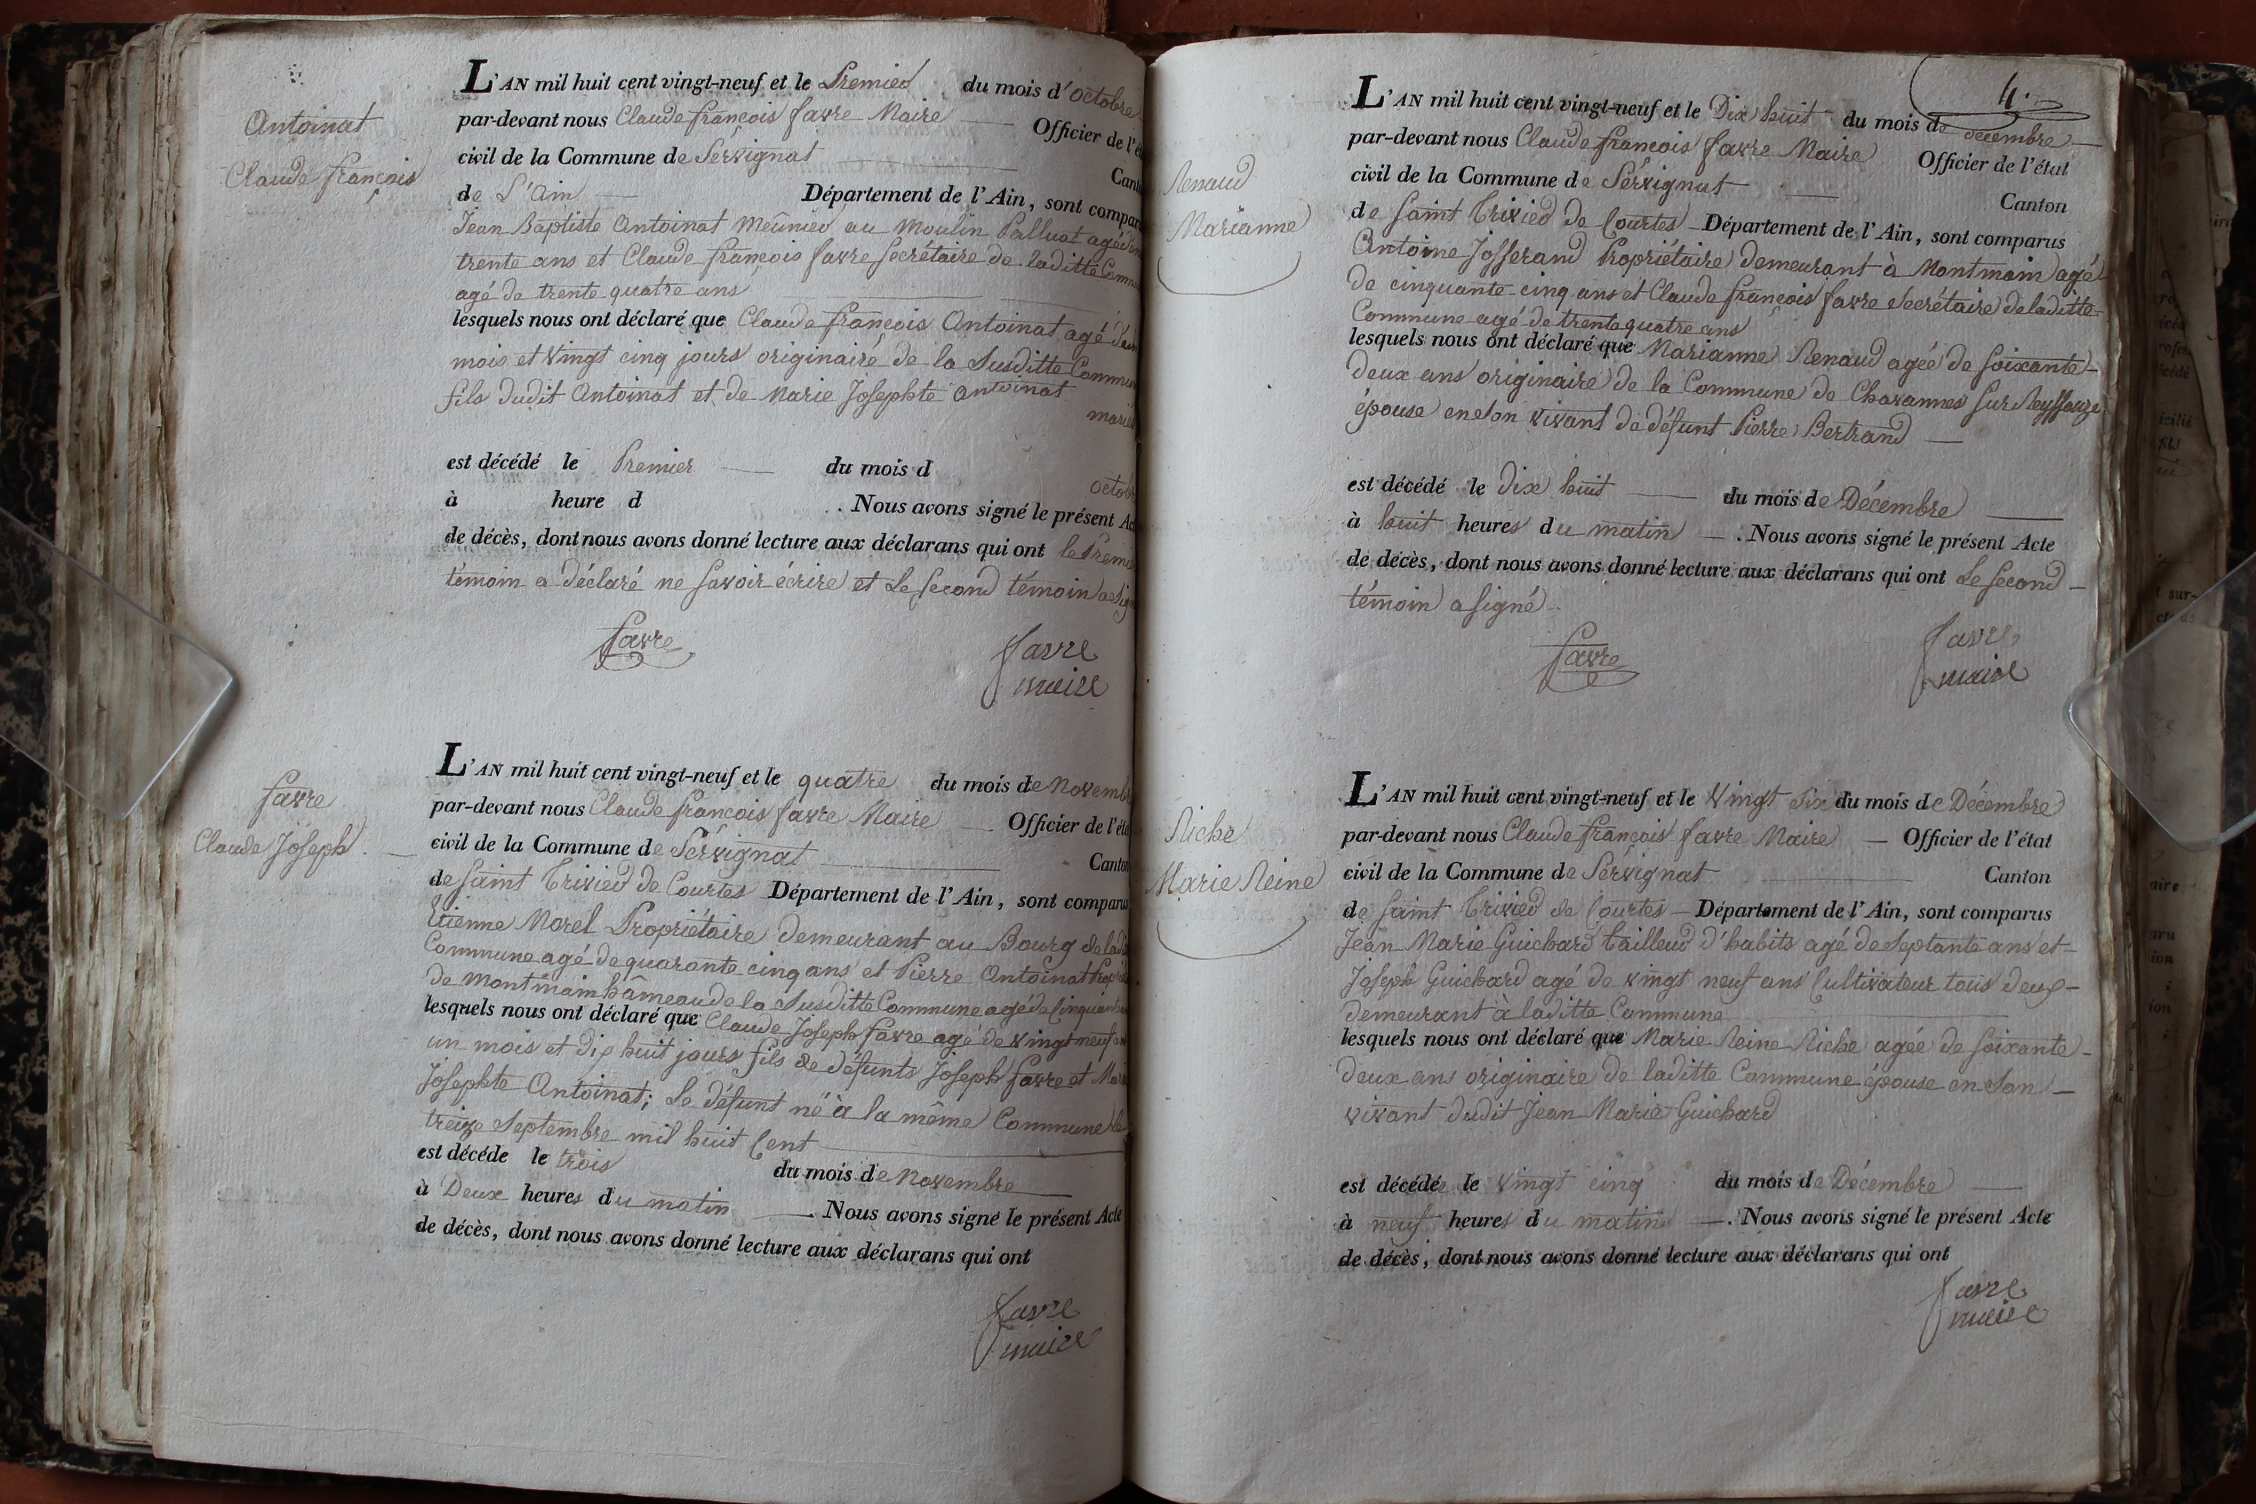 Antoinat
Claude françois
L'AN mil huit cent vingt-neuf et le Premier du mois d'octobre
par-devant nous Claude françois favre Maire Officier de l'ét
civil de la Commune de Servignat Cant
de L'Ain Département de l'Ain, sont compar
Jean Baptiste Antoinat Meûnier au Moulin Palluat agé
trente ans et Claude françois favre Secrétaire de laditte Comm
agé de trente quatre ans
lesquels nous ont déclaré que Claude françois Antoinat agé
mois et vingt cinq jours originaire de la Susditte Commun
fils dudit Antoinat et de Marie Josephte Antoinat
mariés
est décédé le Premier du mois d octob
à heure d . Nous avons signé le présent Act
de décès, dont nous avons donné lecture aux déclarans qui ont le Premi
témoin a déclaré ne savoir écrire et Le second témoin a sig
favre
favre
maire
favre
Claude Joseph
L'AN mil huit cent vingt-neuf et le quatre du mois de Novemb
par-devant nous Claude françois favre Maire Officier de l'éta
civil de la Commune de Servignat Canton
de saint Trivier de Courtes Département de l'Ain, sont comparu
Etienne Morel Propriétaire demeurant au Bourg de ladi
Commune agé de quarante cinq ans et Pierre Antoinat Prop
de Montmain hâmeau de la Susditte Commune agé de Cinquant
lesquels nous ont déclaré que Claude Joseph favre agé de vingt neuf an
un mois et dix huit jours fils de défunts Joseph favre et Mar
Josephte Antoinat; Le défunt né à la même Commune le
treize Septembre mil huit Cent
est décéde le trois du mois de Novembre
à Deux heures du matin . Nous avons signé le présent Acte
de décès, dont nous avons donné lecture aux déclarans qui ont
favre
maire
4.
Renaud
Marianne
L'AN mil huit cent vingt-neuf et le Dix huit du mois de décembre
par-devant nous Claude françois favre Maire Officier de l'état
civil de la Commune de Servignat Canton
de saint Trivier de Courtes Département de l'Ain, sont comparus
Antoine Josserand Propriétaire demeurant à Montmain agé
de cinquante cinq ans et Claude françois favre Secrétaire de laditte
Commune agé de trente quatre ans
lesquels nous ont déclaré que Marianne Renaud agée de soixante
deux ans originaire de la Commune de Chavannes sur Reyssouze
épouse en son vivant de défunt Pierre Bertrand
est décédé le dix huit du mois de Décembre
à huit heures du matin . Nous avons signé le présent Acte
de décès, dont nous avons donné lecture aux déclarans qui ont Le second
témoin a signé
favre
favre
maire
Riche
Marie Reine
L'AN mil huit cent vingt-neuf et le vingt six du mois de Décembre
par-devant nous Claude françois favre Maire Officier de l'état
civil de la Commune de Servignat Canton
de saint Trivier de Courtes Département de l'Ain, sont comparus
Jean Marie Guichard tailleur d'habits agé de septante ans et
Joseph Guichard agé de vingt neuf ans Cultivateur tous deux
demeurant à laditte Commune
lesquels nous ont déclaré que Marie Reine Riche agée de soixante
deux ans originaire de laditte Commune épouse en son
vivant dudit Jean Marie Guichard
est décédé le vingt cinq du mois de Décembre
à neuf heures du matin . Nous avons signé le présent Acte
de décès, dont nous avons donné lecture aux déclarans qui ont
favre
maire